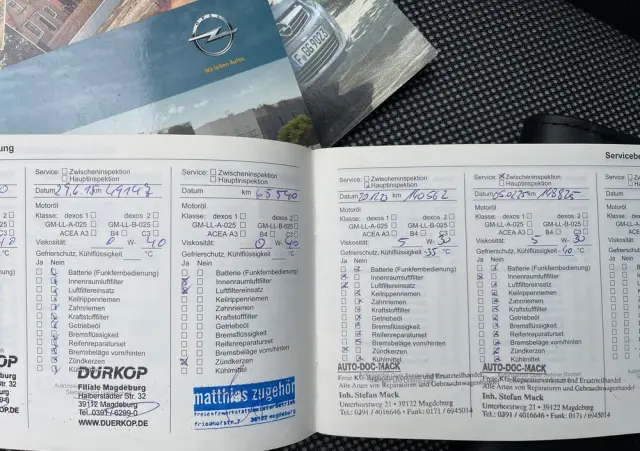 OPEL
Wir leben Autos.
F GG 9023
Service: Zwischeninspektion
Hauptinspektion
Datum 29.6.15 km 49147
Motoröl
Klasse: dexos 1 dexos 2
GM-LL-A-025 GM-LL-B-025
ACEA A3 B4 C3
Viskosität: 0 W- 40
Gefrierschutz, Kühlflüssigkeit °C
Ja Nein
Batterie (Funkfernbedienung)
Innenraumluftfilter
Luftfiltereinsatz
Keilrippenriemen
Zahnriemen
Kraftstofffilter
Getriebeöl
Bremsflüssigkeit
Reifenreparaturset
Bremsbeläge vorn/hinten
Zündkerzen
Kühlmittel
DÜRKOP
Filiale Magdeburg
Halberstädter Str. 32
39112 Magdeburg
Tel. 0391/6299-0
WWW.DUERKOP.DE
Service: Zwischeninspektion
Hauptinspektion
Datum km 65540
Motoröl
Klasse: dexos 1 dexos 2
GM-LL-A-025 GM-LL-B-025
ACEA A3 B4 C3
Viskosität: 0 W- 40
Gefrierschutz, Kühlflüssigkeit °C
Ja Nein
Batterie (Funkfernbedienung)
Innenraumluftfilter
Luftfiltereinsatz
Keilrippenriemen
Zahnriemen
Kraftstofffilter
Getriebeöl
Bremsflüssigkeit
Reifenreparaturset
Bremsbeläge vorn/hinten
Zündkerzen
Kühlmittel
matthias zugehör
39122 magdeburg
Service: Zwischeninspektion
Hauptinspektion
Datum km 140562
Motoröl
Klasse: dexos 1 dexos 2
GM-LL-A-025 GM-LL-B-025
ACEA A3 B4 C3
Viskosität: 5 W- 30
Gefrierschutz, Kühlflüssigkeit -35 °C
Ja Nein
Batterie (Funkfernbedienung)
Innenraumluftfilter
Luftfiltereinsatz
Keilrippenriemen
Zahnriemen
Kraftstofffilter
Getriebeöl
Bremsflüssigkeit
Reifenreparaturset
Bremsbeläge vorn/hinten
Zündkerzen
Kühlmittel
AUTO-DOC-MACK
Freie Kfz-Reparaturwerkstatt und Ersatzteilhandel
Alle Arten von Reparaturen und Gebrauchtwagen
Inh. Stefan Mack
Unterhorstweg 21 • 39122 Magdeburg
Tel.: 0391 / 4016646 • Funk: 0171 / 6945014
Servicebe
Service: Zwischeninspektion
Hauptinspektion
Datum 05.02.25 km 148825
Motoröl
Klasse: dexos 1 dexos 2
GM-LL-A-025 GM-LL-B-025
ACEA A3 B4 C3
Viskosität: 5 W- 30
Gefrierschutz, Kühlflüssigkeit -40 °C
Ja Nein
Batterie (Funkfernbedienung)
Innenraumluftfilter
Luftfiltereinsatz
Keilrippenriemen
Zahnriemen
Kraftstofffilter
Getriebeöl
Bremsflüssigkeit
Reifenreparaturset
Bremsbeläge vorn/hinten
Zündkerzen
Kühlmittel
AUTO-DOC-MACK
Freie Kfz-Reparaturwerkstatt und Ersatzteilhandel
Alle Arten von Reparaturen und Gebrauchtwagen
Inh. Stefan Mack
Unterhorstweg 21 • 39122 Magdeburg
Tel.: 0391 / 4016646 • Funk: 0171 / 6945014